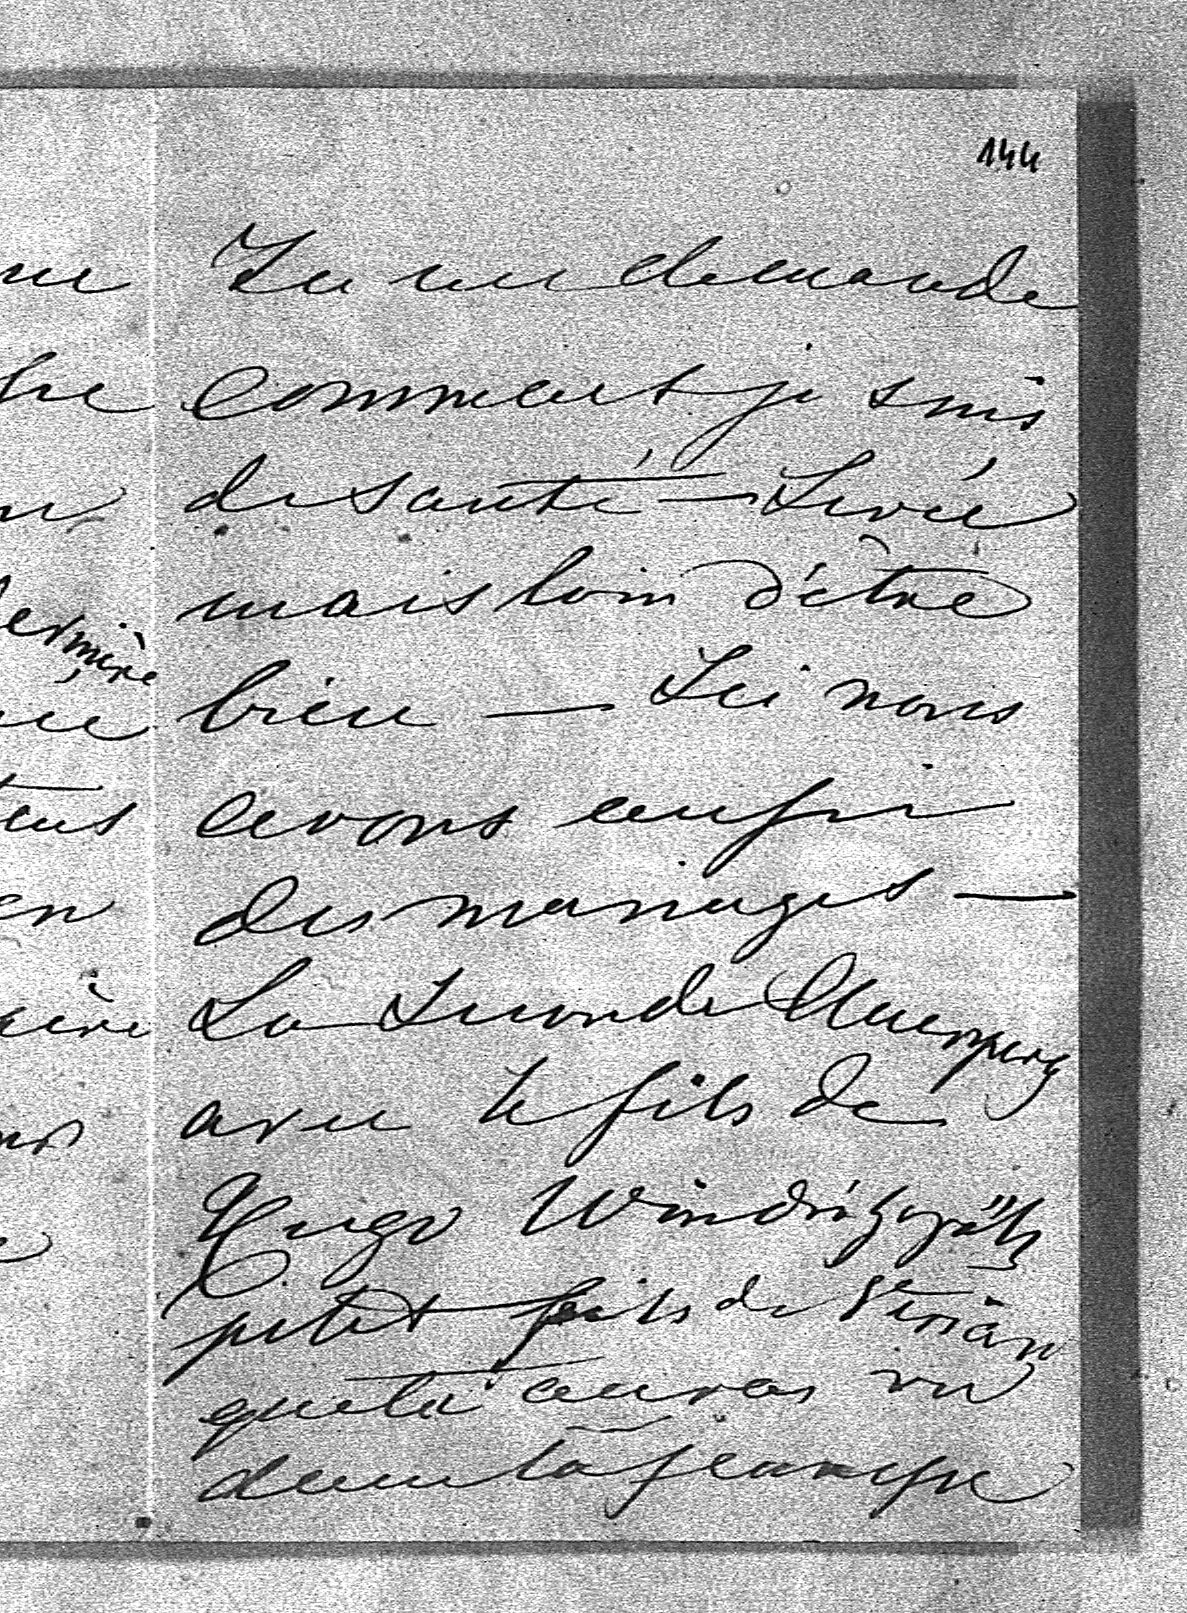 144
Tu me demande
comment je suis
de santé — Levée
mais loin d'être
bien — Ici nous
avons enfin
des mariages —
La Seconde Auersperg
avec le fils de
Hugo Windischgrätz
petit fils de Vériand
que tu auras vu
dans ta jeunesse
ernière